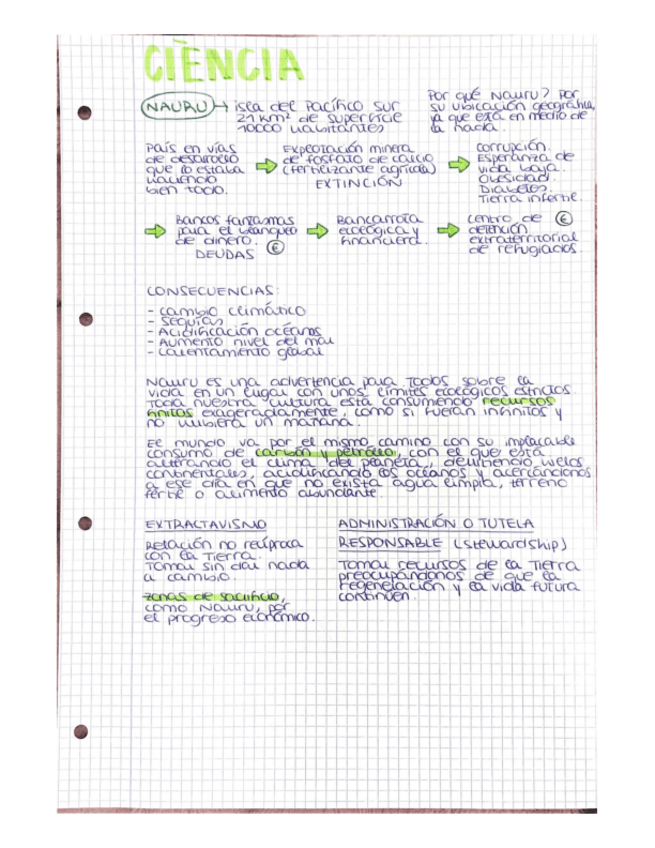 CIÈNCIA
NAURU → isla del Pacífico sur
21 km² de superficie
10000 habitantes
Por qué Nauru? Por
su ubicación geográfica,
ya que está en medio de
la nada.
País en vías
de desarrollo
que lo estaba
haciendo
bien todo.
⇨ Explotación minera
de fosfato de calcio
(fertilizante agrícola)
EXTINCIÓN
⇨ Corrupción.
Esperanza de
vida baja.
Obesidad.
Diabetes.
Tierra infértil.
⇨ Bancos fantasmas
para el blanqueo
de dinero. €
DEUDAS
⇨ Bancarrota
ecológica y
financiera.
⇨ Centro de €
detención
extraterritorial
de refugiados.
CONSECUENCIAS:
- Cambio climático
- Sequías
- Acidificación océanos
- Aumento nivel del mar
- Calentamiento global
Nauru es una advertencia para todos sobre la
vida en un lugar con unos límites ecológicos estrictos.
Toda nuestra cultura está consumiendo recursos
finitos exageradamente, como si fueran infinitos y
no hubiera un mañana.
El mundo va por el mismo camino con su implacable
consumo de carbón y petróleo, con el que está
alterando el clima del planeta, derritiendo hielos
continentales, acidificando los océanos y acercándonos
a ese día en que no exista agua limpia, terreno
fértil o alimento abundante.
EXTRACTAVISMO
Relación no recíproca
con la Tierra.
Tomar sin dar nada
a cambio.
zonas de sacrificio,
como Nauru, por
el progreso económico.
ADMINISTRACIÓN O TUTELA
RESPONSABLE (stewardship)
Tomar recursos de la Tierra
preocupándonos de que la
regeneración y la vida futura
continúen.